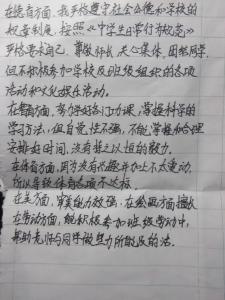 在德育方面，我严格遵守社会公德和学校的
规章制度，按照《中学生日常行为规范》
严格要求自己，尊敬师长，关心集体，团结同学，
但不积极参加学校及班级组织的各项
活动和文化娱乐活动。
在智育方面，努力学好各门功课，掌握科学的
学习方法，但自觉性不强，不能掌握合理
安排好时间，没有持之以恒的毅力。
在体育方面，因为没有兴趣并加上不太爱动，
所以导致体育各项不达标。
在美方面，审美能力较强，在绘画方面擅长
在劳动方面，能积极参加班级劳动中，
帮助老师与同学做些力所能及的活。